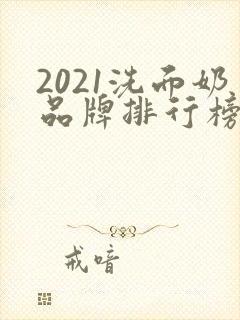 2021洗面奶
品牌排行榜
戒喑